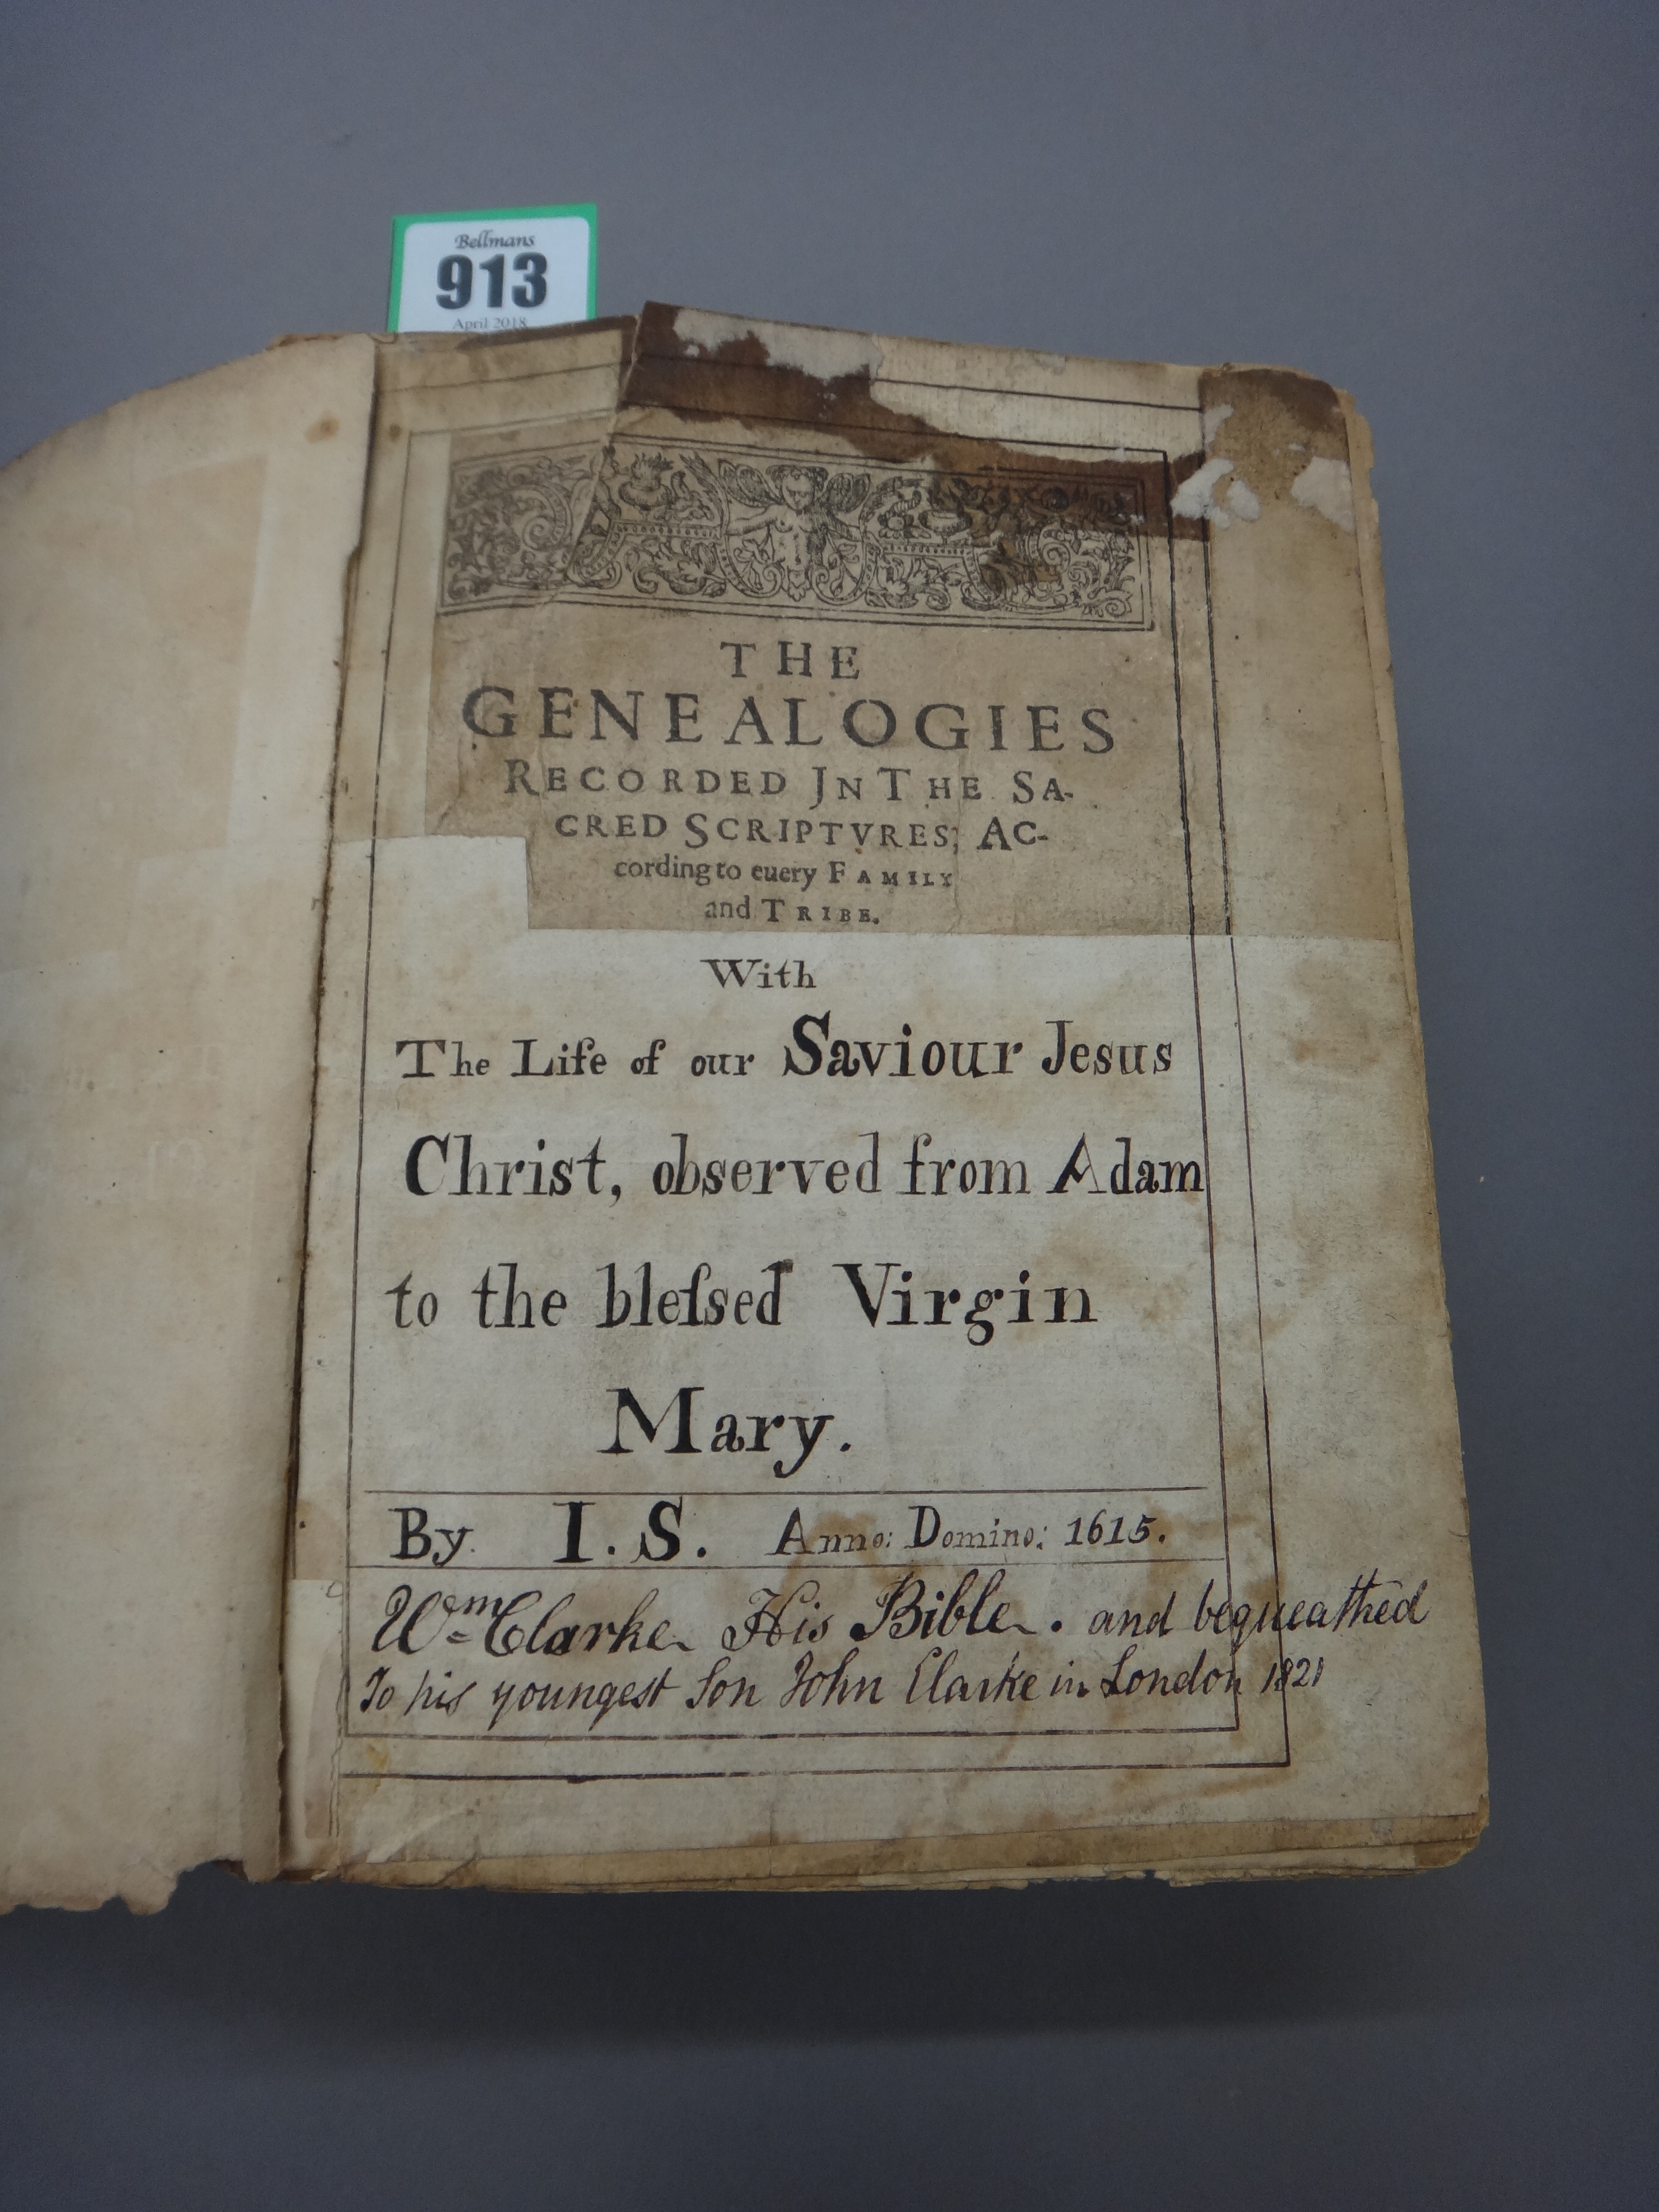 Bellmans
913
April 2018
THE
GENEALOGIES
RECORDED JN THE SA-
CRED SCRIPTVRES; AC-
cording to euery FAMILY
and TRIBE.
With
The Life of our Saviour Jesus
Christ, observed from Adam
to the bleſsed Virgin
Mary.
By. I. S. Anno: Domino: 1615.
Wm Clarke His Bible. and bequeathed
To his youngest Son John Clarke in London 1821